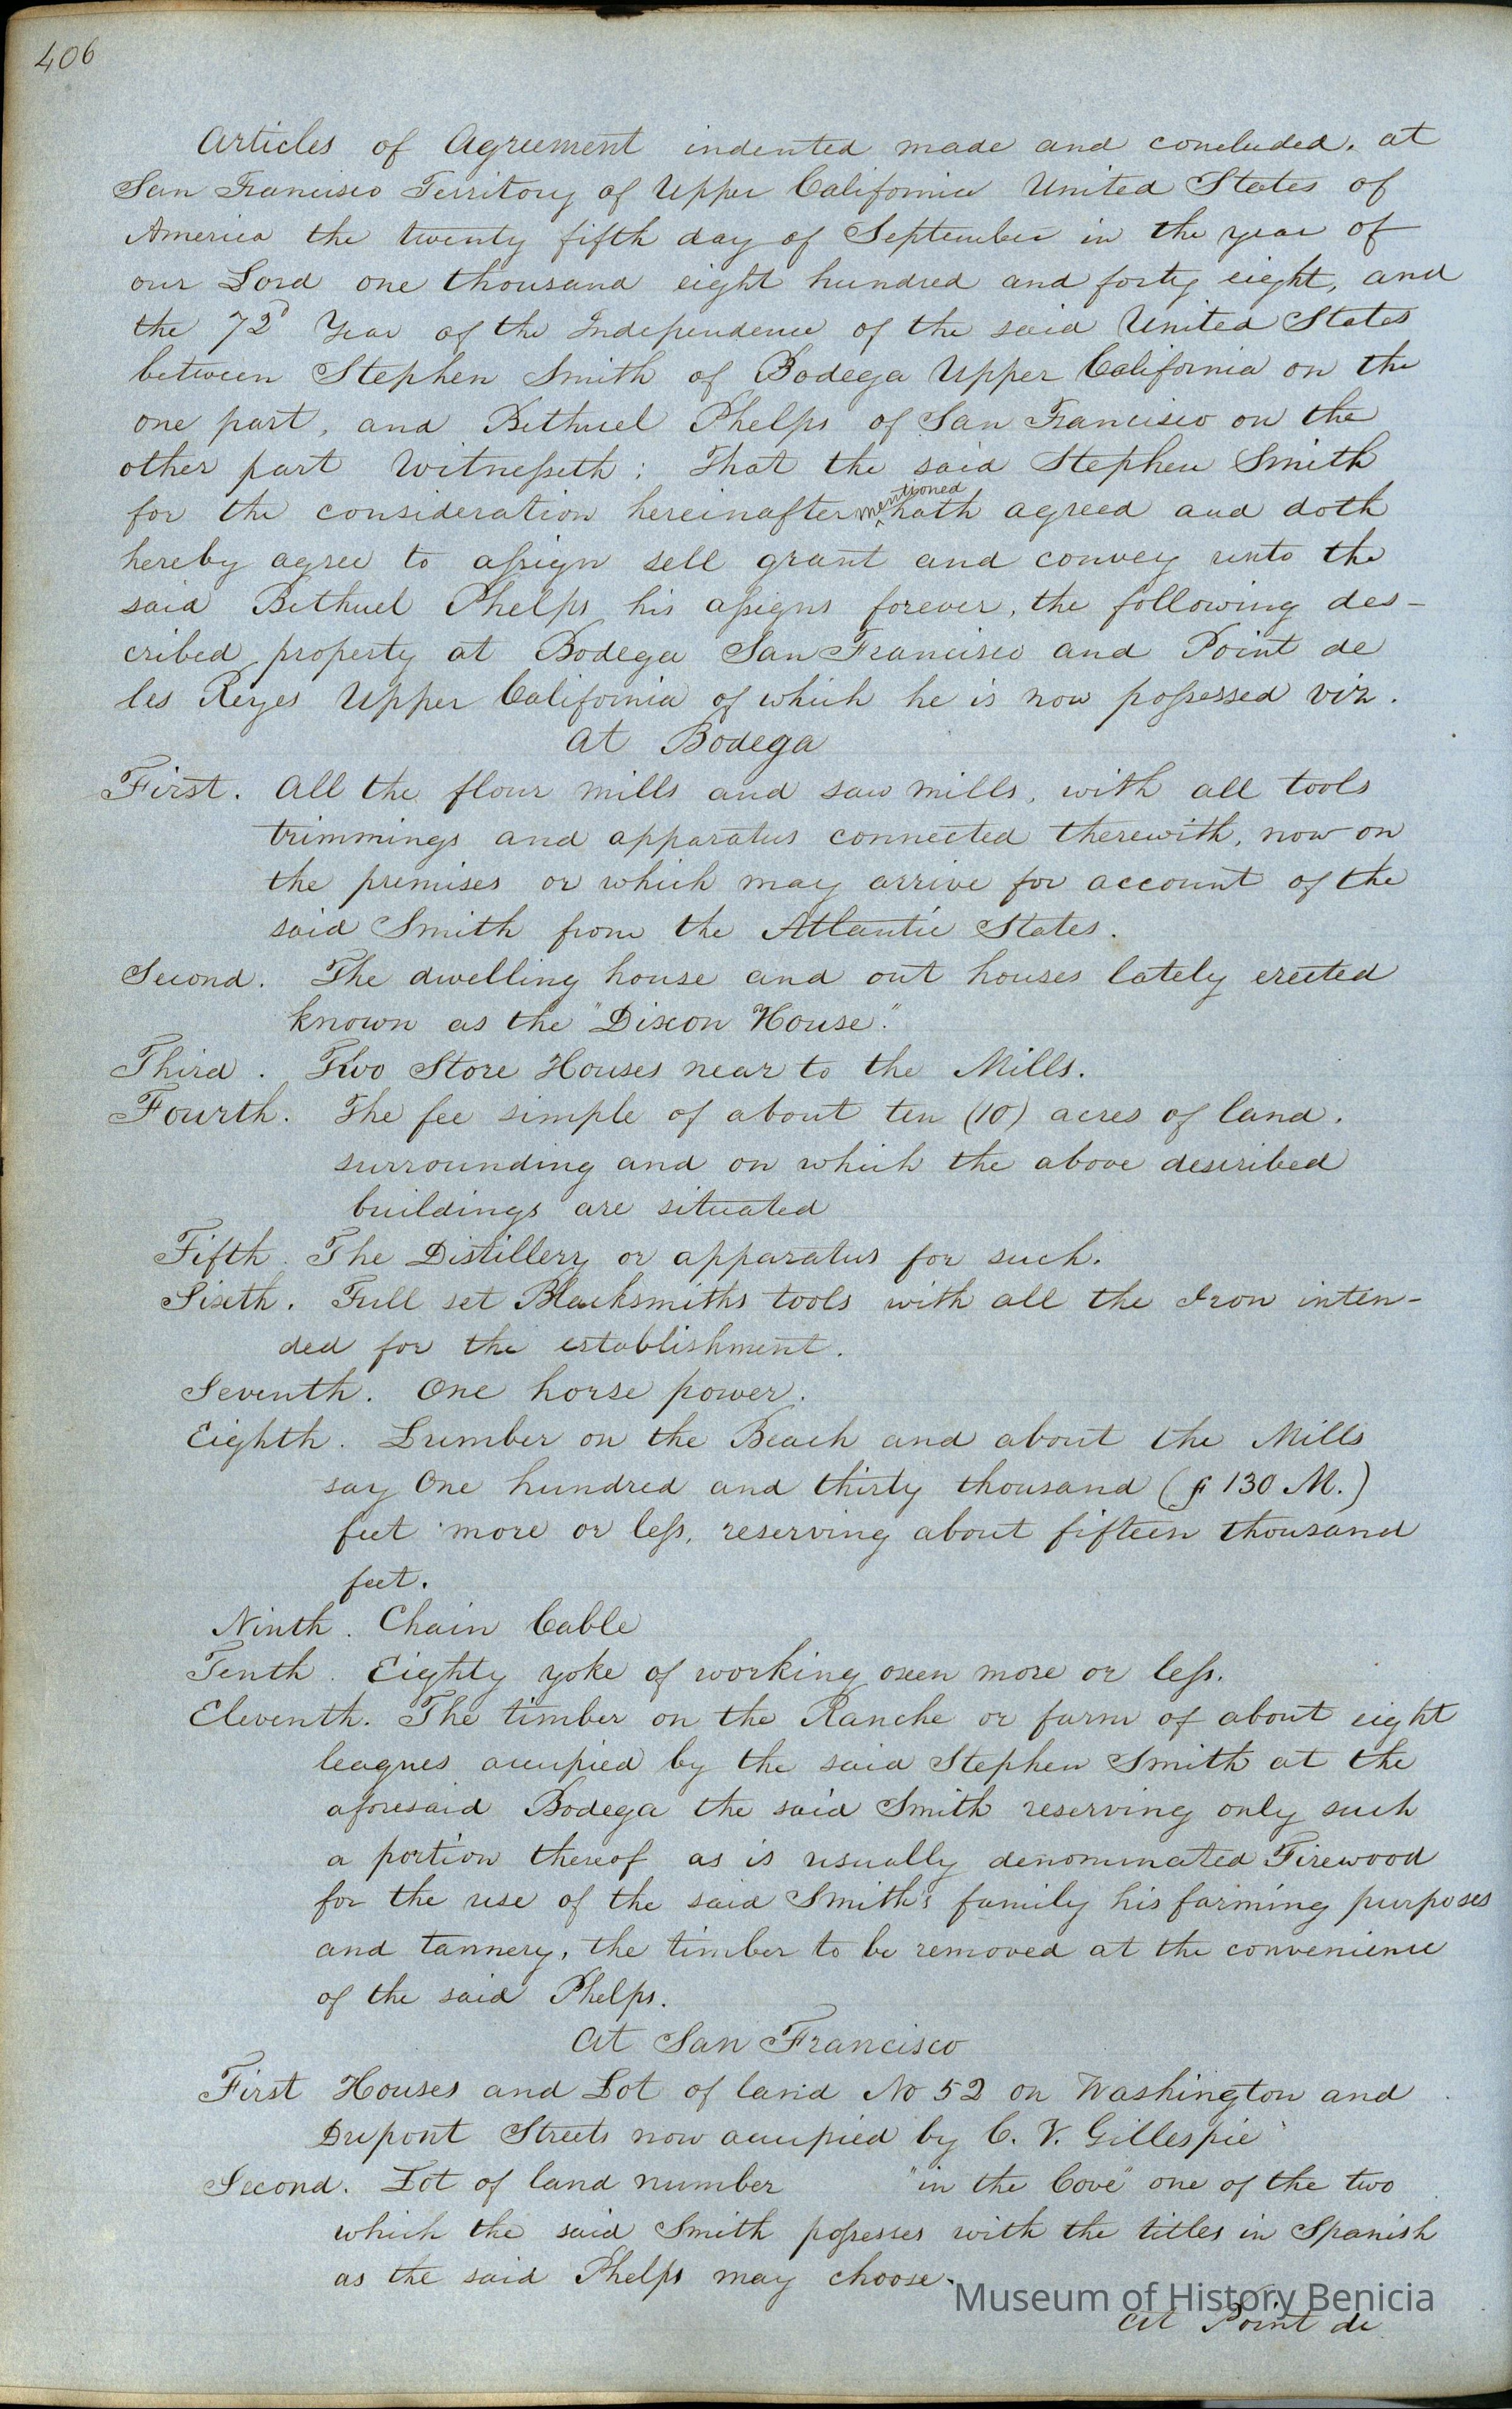 406
Articles of Agreement indented made and concluded. at
San Francisco Territory of Upper California United States of
America the twenty fifth day of September in the year of
our Lord one thousand eight hundred and forty eight, and
the 72d Year of the Independence of the said United States
between Stephen Smith of Bodega Upper California on the
one part, and Bethuel Phelps of San Francisco on the
other part Witnesseth; That the said Stephen Smith
for the consideration hereinafter mentioned hath agreed and doth
hereby agree to assign sell grant and convey unto the
said Bethuel Phelps his assigns forever, the following des-
cribed property at Bodega San Francisco and Point de
les Reyes Upper California of which he is now possessed viz.
At Bodega
First. All the flour mills and saw mills, with all tools
trimmings and apparatus connected therewith, now on
the premises or which may arrive for account of the
said Smith from the Atlantic States.
Second. The dwelling house and out houses lately erected
known as the "Dixon House."
Third. Two Store Houses near to the Mills.
Fourth. The fee simple of about ten (10) acres of land.
surrounding and on which the above described
buildings are situated
Fifth. The Distillery or apparatus for such.
Sixth. Full set Blacksmiths tools with all the Iron inten-
ded for the establishment.
Seventh. One horse power.
Eighth. Lumber on the Beach and about the Mills
say One hundred and thirty thousand ( 130 M.)
feet more or less, reserving about fifteen thousand
feet.
Ninth. Chain Cable
Tenth. Eighty yoke of working oxen more or less.
Eleventh. The timber on the Ranche or farm of about eight
leagues occupied by the said Stephen Smith at the
aforesaid Bodega the said Smith reserving only such
a portion thereof as is usually denominated Firewood
for the use of the said Smith's family his farming purposes
and tannery, the timber to be removed at the convenience
of the said Phelps.
At San Francisco
First Houses and Lot of land No 52 on Washington and
Dupont Streets now occupied by C. V. Gillespie
Second. Lot of land number "in the Cove" one of the two
which the said Smith possesses with the titles in Spanish
as the said Phelps may choose.
Museum of History Benicia
At Point de